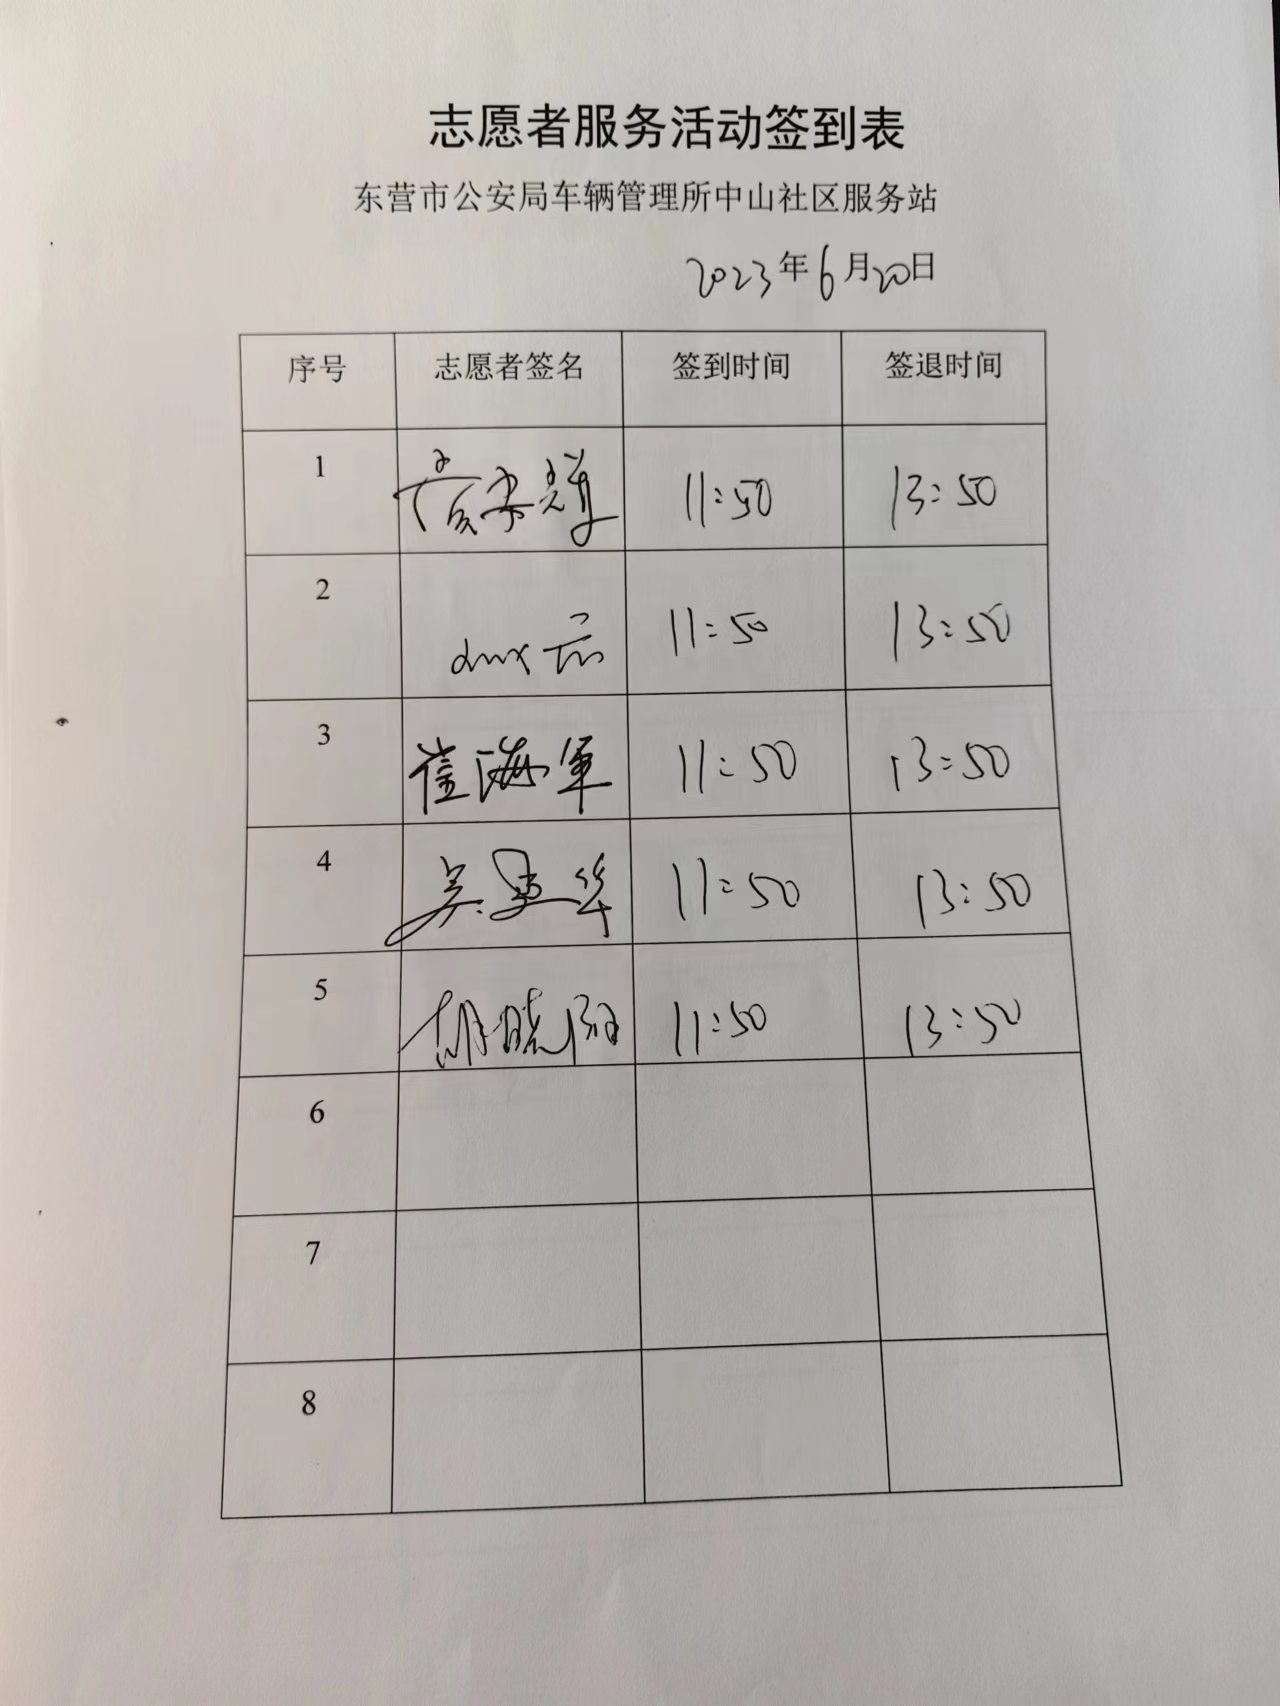 志愿者服务活动签到表
东营市公安局车辆管理所中山社区服务站
2023年6月20日
序号 志愿者签名 签到时间 签退时间
1 11:50 13:50
2 11:50 13:50
3 崔海军 11:50 13:50
4 11:50 13:50
5 胡晓阳 11:50 13:50
6
7
8